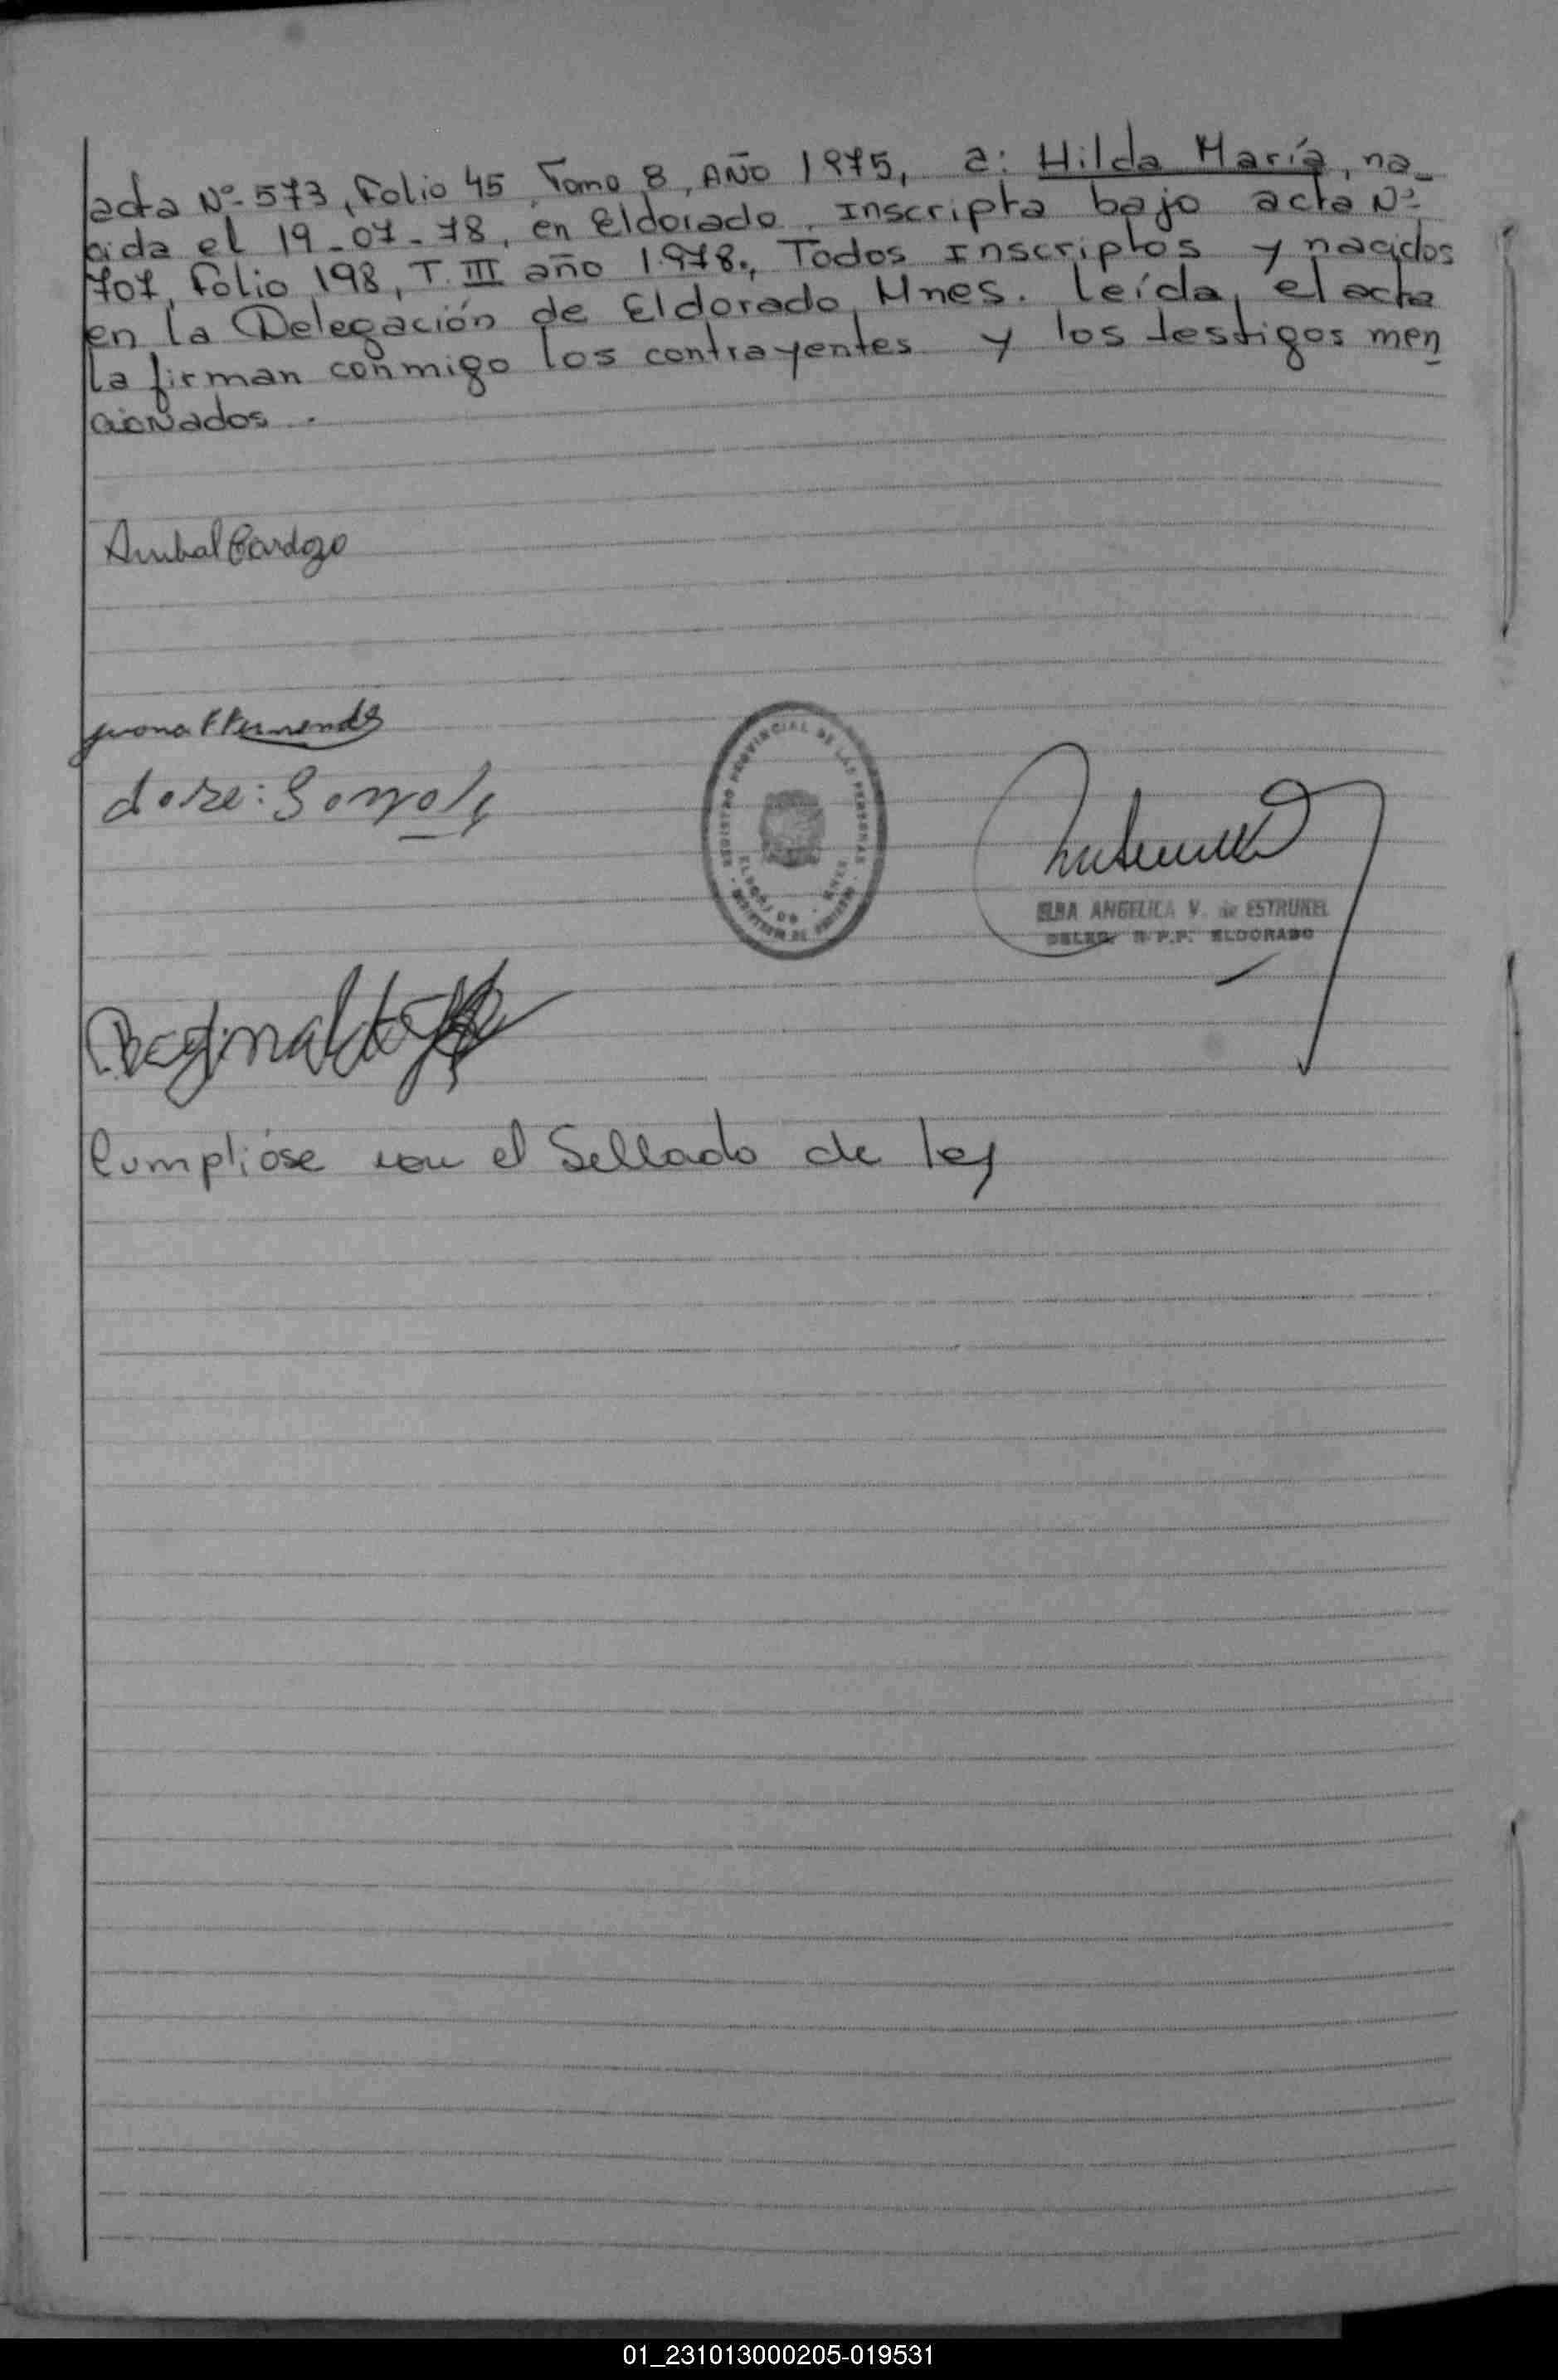 acta Nº 573, Folio 45, Tomo 8, AÑO 1975, a: Hilda María, na_
cida el 19-07-78, en Eldorado, Inscripta bajo acta Nº
707, Folio 198, T. III año 1.978., Todos Inscriptos y nacidos
en la Delegación de Eldorado, Mnes. Leída, el acta
la firman conmigo los contrayentes y los testigos men
cionados.-
Anibal Cardozo
Juana Fernandez
José:
REGISTRO PROVINCIAL DE LAS PERSONAS
ELDORADO - MNES
ELBA ANGELICA V. de ESTRUKEL
DELEG. R.P.P. ELDORADO
Reginaldo
Cumplióse con el Sellado de ley
01_231013000205-019531